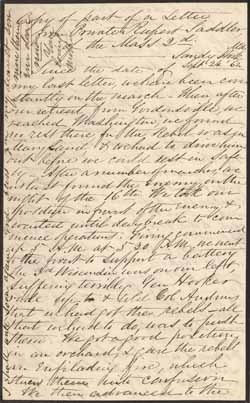 Copy of part of a Letter
from Private Rupert Saddler
the Mass 2nd
Sandy Hook
Sept 26 62
Since the date of
my last letter, we have been con
stantly on the march. When after
our retreat from Gordonsville, we
reached Washington we found
no rest there for the Rebel was in
Maryland & we had to drive him
out before we could rest in safe
ty. After a number of marches, we
met & found the enemy on the
night of the 16th. We took our
position in front of the enemy &
waited until day break to com
mence operations. Firing commenced
at 5 A.M. at 5.30 A.M. we went
to the front to support a battery
the 3d Wisconsin was on our left,
suffering terribly. Gen Hooker
rode by & told Col Andrews
that we had got these rebels all
that we had to do, was to push
them. We got a good position
in an orchard & gave the rebels
an Enfilading fire, which
threw them into confusion
We then advanced to the